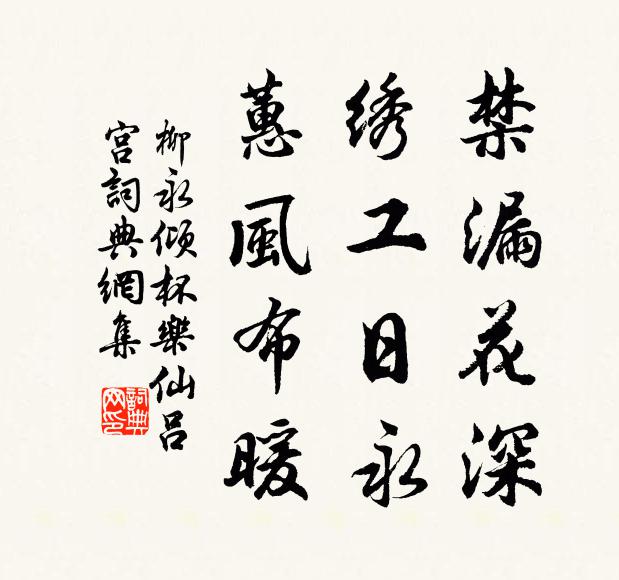 禁漏花深
绣工日永
蕙風布暖
柳永傾杯樂仙呂
宮詞典網集
詞典
网印